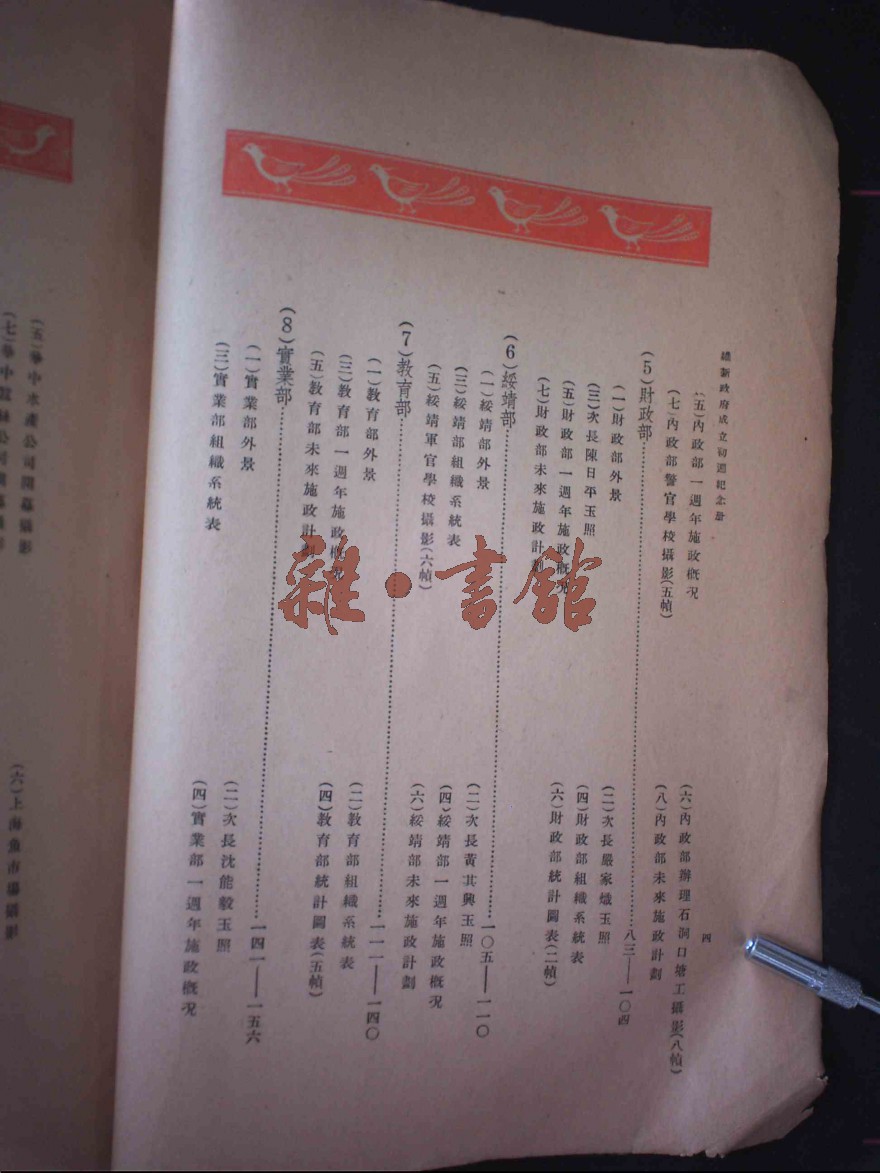 維新政府成立初週紀念册
四
(五)內政部一週年施政概況
(六)內政部辦理石洞口塘工攝影(八幀)
(七)內政部警官學校攝影(五幀)
(八)內政部未來施政計劃
(5)財政部……八三——一〇四
(一)財政部外景
(二)次長嚴家熾玉照
(三)次長陳日平玉照
(四)財政部組織系統表
(五)財政部一週年施政概況
(六)財政部統計圖表(二幀)
(七)財政部未來施政計劃
(6)綏靖部……一〇五——一一〇
(一)綏靖部外景
(二)次長黃其興玉照
(三)綏靖部組織系統表
(四)綏靖部一週年施政概況
(五)綏靖軍官學校攝影(六幀)
(六)綏靖部未來施政計劃
(7)教育部……一一一——一四〇
(一)教育部外景
(二)教育部組織系統表
(三)教育部一週年施政概況
(四)教育部統計圖表(五幀)
(五)教育部未來施政計劃
(8)實業部……一四一——一五六
(一)實業部外景
(二)次長沈能毅玉照
(三)實業部組織系統表
(四)實業部一週年施政概況
(五)華中水產公司開幕攝影
(六)上海魚市場攝影
雜·書館